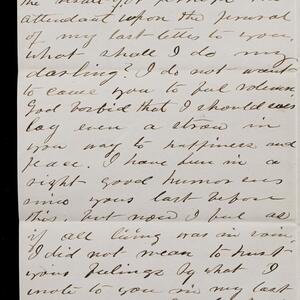 the
attendant upon the perusal
of my last letter to you,
what shall I do my
darling? I do not want
to cause you to feel
God forbid that I should ever
lay even a straw in
your way to happiness and
peace. I have been in a
right good humor ever
since yours last before
this, but now I feel as
if all living was in vain,
I did not mean to hurt
your feelings by what I
wrote to you in my last